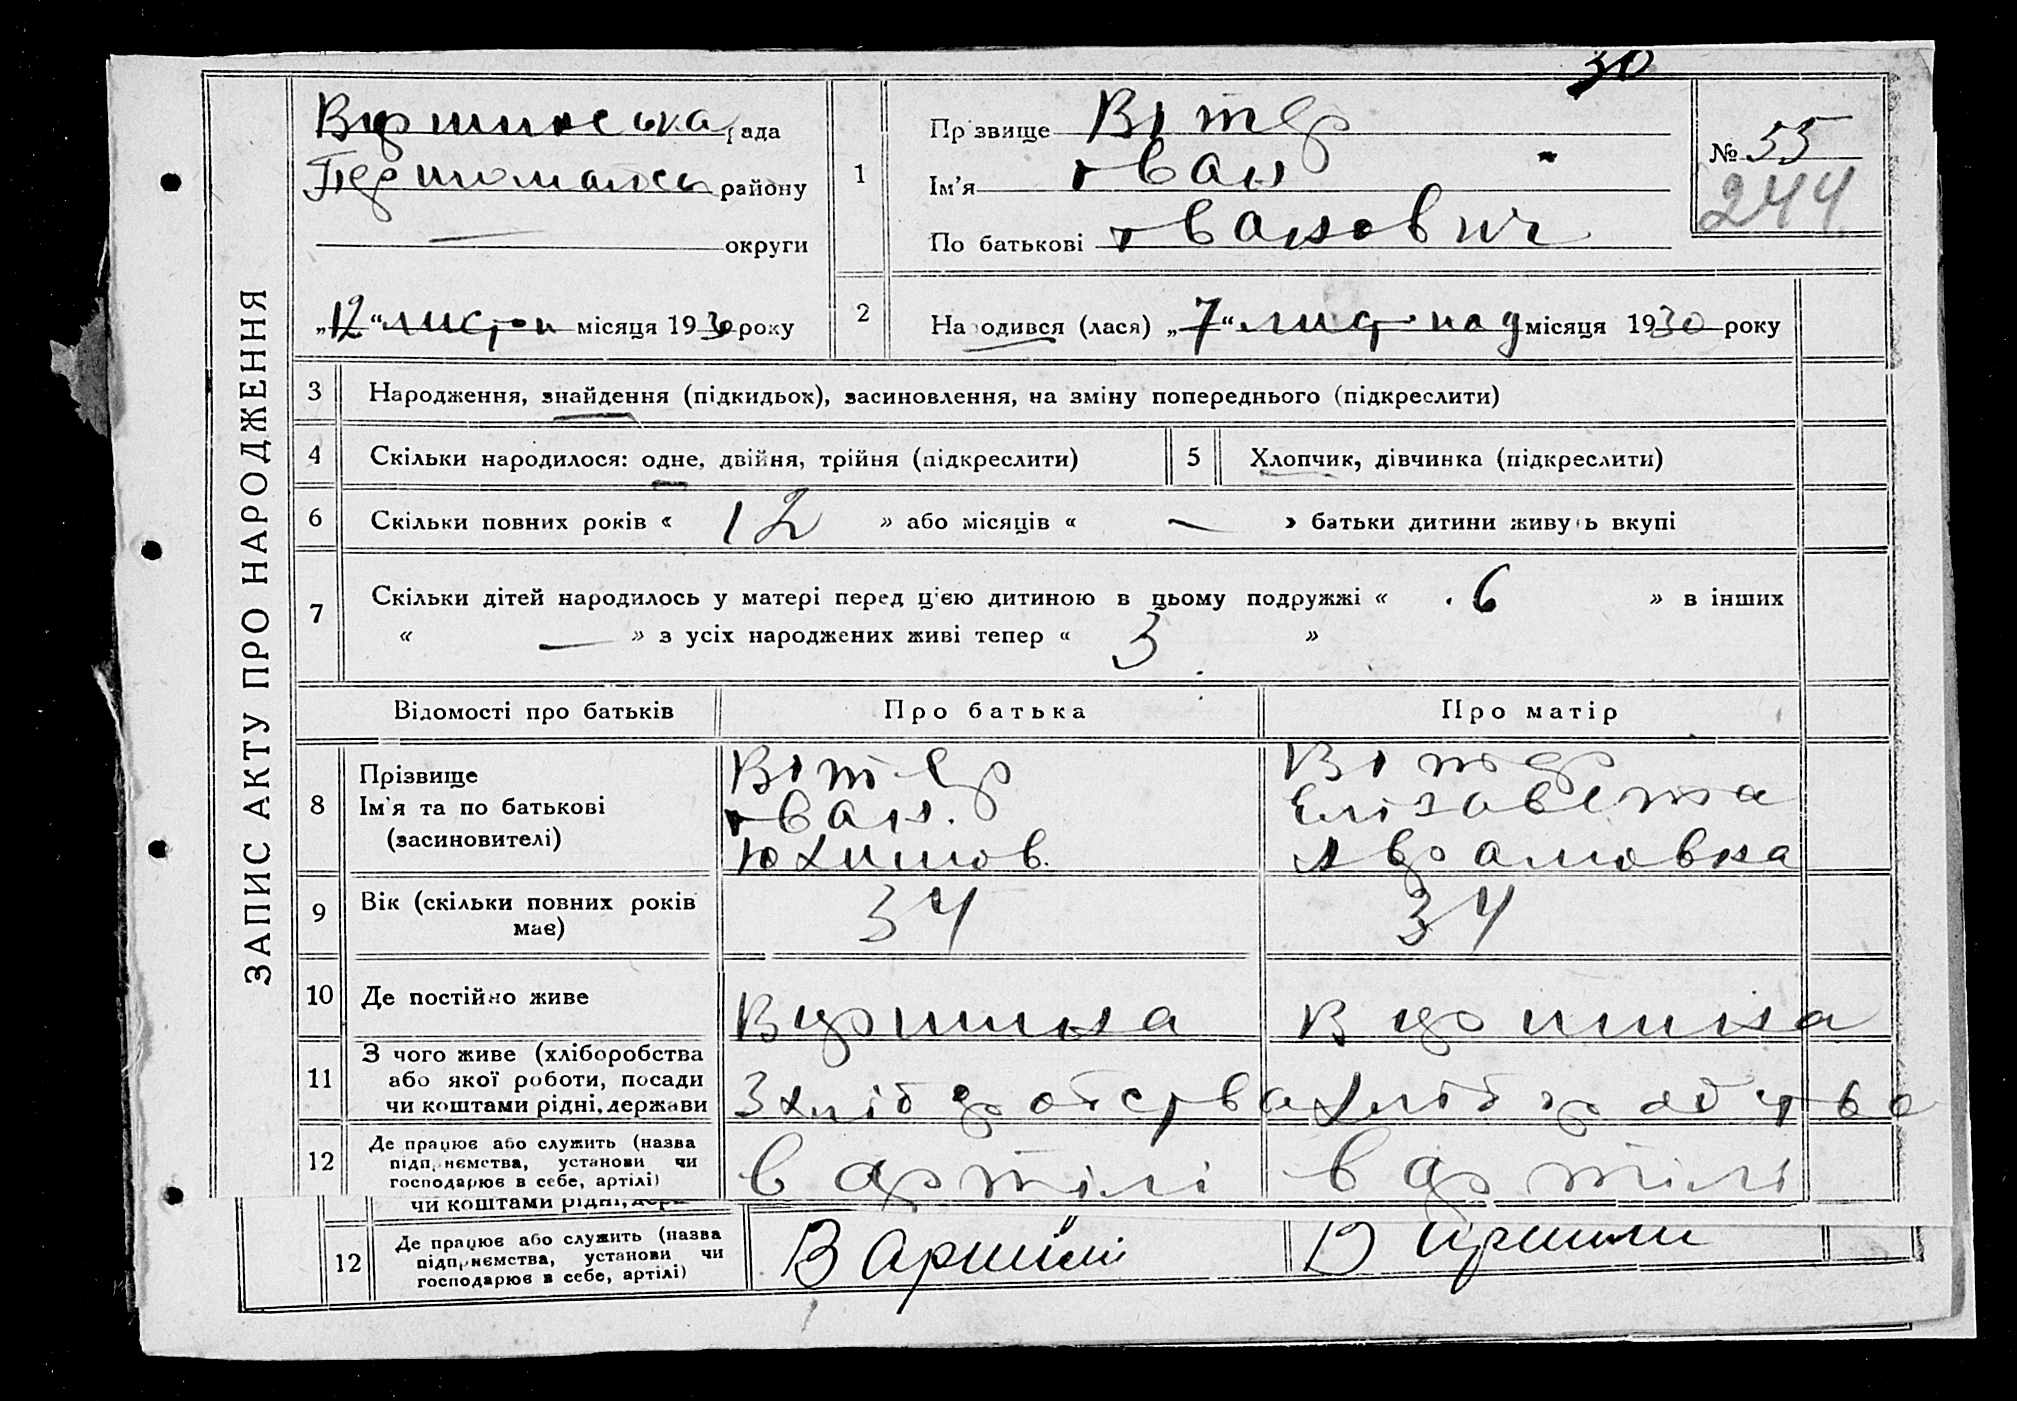 30
ЗАПИС АКТУ ПРО НАРОДЖЕННЯ
рада
району
— округи
„12“ листоп місяця 1930 року
1
Прізвище Вітер
Ім'я Іван
По батькові Іванович
№ 55
244
2
Народився (лася) „7“ листопад місяця 1930 року
3 Народження, знайдення (підкидьок), засиновлення, на зміну попереднього (підкреслити)
4 Скільки народилося: одне, двійня, трійня (підкреслити) 5 Хлопчик, дівчинка (підкреслити)
6 Скільки повних років « 12 » або місяців « — » батьки дитини живуть вкупі
7 Скільки дітей народилось у матері перед цією дитиною в цьому подружжі « 6 » в інших
« — » з усіх народжених живі тепер « 3 »
Відомості про батьків Про батька Про матір
8 Прізвище
Ім'я та по батькові
(засиновителі)
Вітер
Іван
Юхимов.
Вітер
Елізовета
Аврамовна
9 Вік (скільки повних років має) 34 34
10 Де постійно живе
11 З чого живе (хліборобства
або якої роботи, посади
чи коштами рідні, держави
З хліборобства хліборобства
12 Де працює або служить (назва
підприємства, установи чи
господарює в себе, артілі)
в артілі в артілі
чи коштами рідні, держ
12 Де працює або служить (назва
підприємства, установи чи
господарює в себе, артілі)
В артілі В артілі